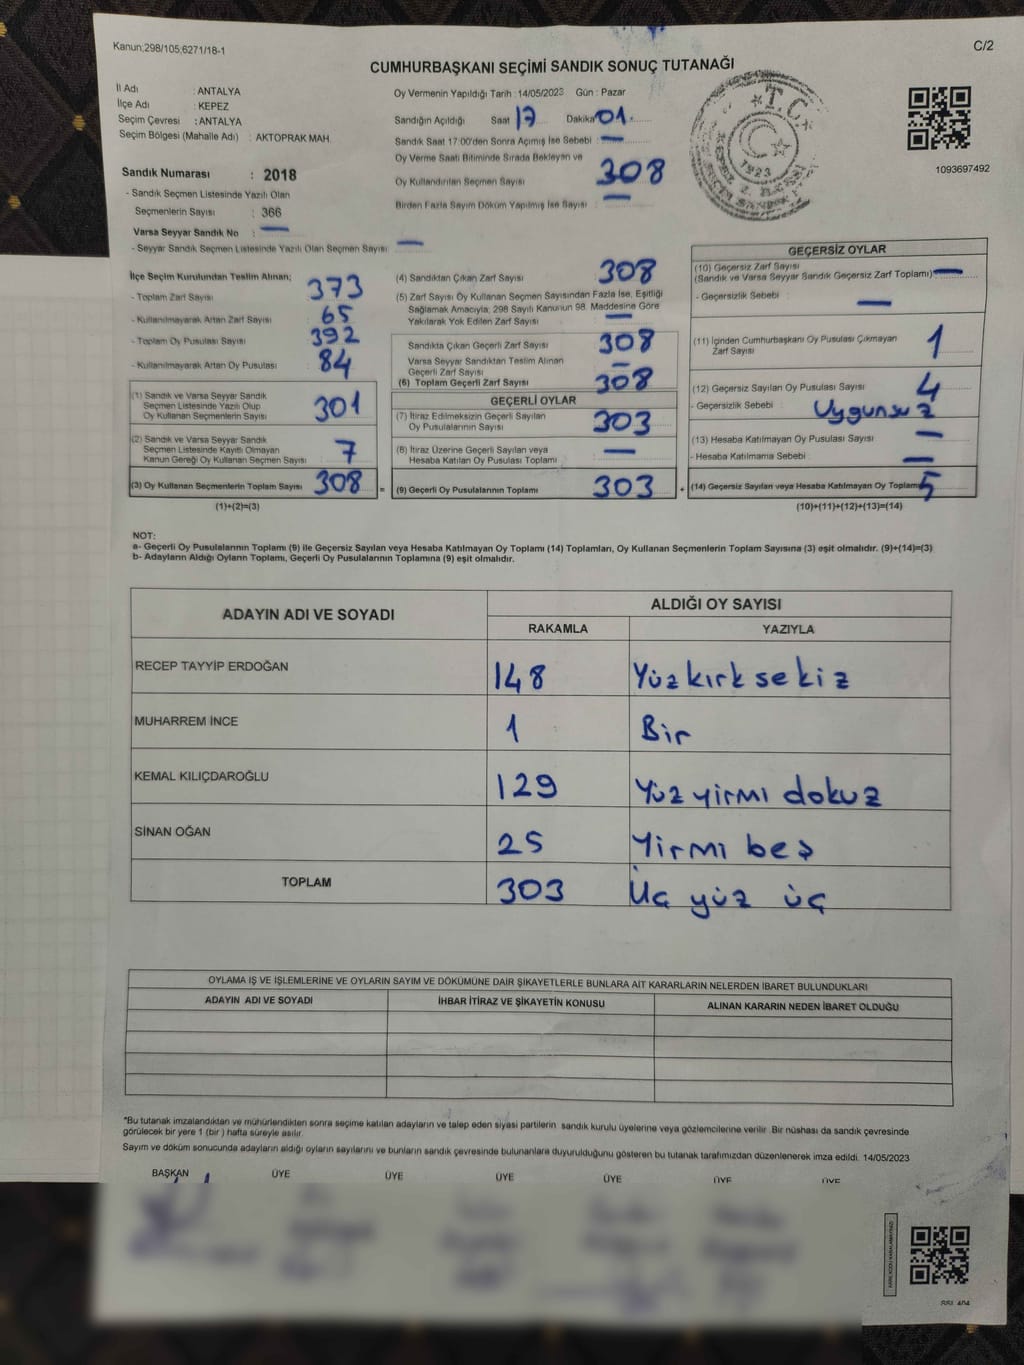 Kanun;298/105;6271/18-1
C/2
CUMHURBAŞKANI SEÇİMİ SANDIK SONUÇ TUTANAĞI
İl Adı : ANTALYA
İlçe Adı : KEPEZ
Seçim Çevresi : ANTALYA
Seçim Bölgesi (Mahalle Adı) : AKTOPRAK MAH.
Sandık Numarası : 2018
- Sandık Seçmen Listesinde Yazılı Olan
Seçmenlerin Sayısı : 366
Varsa Seyyar Sandık No : —
- Seyyar Sandık Seçmen Listesinde Yazılı Olan Seçmen Sayısı : —
Oy Vermenin Yapıldığı Tarih : 14/05/2023 Gün : Pazar
Sandığın Açıldığı Saat 17 Dakika 01
Sandık Saat 17:00'den Sonra Açımış İse Sebebi : —
Oy Verme Saati Bitiminde Sırada Bekleyen ve
Oy Kullandırılan Seçmen Sayısı : 308
Birden Fazla Sayım Döküm Yapılmış İse Sayısı : —
T.C.
1923
1093697492
İlçe Seçim Kurulundan Teslim Alınan;
- Toplam Zarf Sayısı 373
- Kullanılmayarak Artan Zarf Sayısı : 65
- Toplam Oy Pusulası Sayısı : 392
- Kullanılmayarak Artan Oy Pusulası : 84
(1) Sandık ve Varsa Seyyar Sandık
Seçmen Listesinde Yazılı Olup
Oy Kullanan Seçmenlerin Sayısı 301
(2) Sandık ve Varsa Seyyar Sandık
Seçmen Listesinde Kayıtlı Olmayan
Kanun Gereği Oy Kullanan Seçmen Sayısı 7
(3) Oy Kullanan Seçmenlerin Toplam Sayısı 308
(1)+(2)=(3)
(4) Sandıktan Çıkan Zarf Sayısı 308
(5) Zarf Sayısı Oy Kullanan Seçmen Sayısından Fazla İse, Eşitliği
Sağlamak Amacıyla; 298 Sayılı Kanunun 98. Maddesine Göre
Yakılarak Yok Edilen Zarf Sayısı —
Sandıkta Çıkan Geçerli Zarf Sayısı 308
Varsa Seyyar Sandıktan Teslim Alınan
Geçerli Zarf Sayısı —
(6) Toplam Geçerli Zarf Sayısı 308
GEÇERLİ OYLAR
(7) İtiraz Edilmeksizin Geçerli Sayılan
Oy Pusulalarının Sayısı 303
(8) İtiraz Üzerine Geçerli Sayılan veya
Hesaba Katılan Oy Pusulası Toplamı —
= (9) Geçerli Oy Pusulalarının Toplamı 303
GEÇERSİZ OYLAR
(10) Geçersiz Zarf Sayısı
(Sandık ve Varsa Seyyar Sandık Geçersiz Zarf Toplamı) —
- Geçersizlik Sebebi : —
(11) İçinden Cumhurbaşkanı Oy Pusulası Çıkmayan
Zarf Sayısı 1
(12) Geçersiz Sayılan Oy Pusulası Sayısı 4
- Geçersizlik Sebebi : Uygunsuz
(13) Hesaba Katılmayan Oy Pusulası Sayısı —
- Hesaba Katılmama Sebebi : —
+ (14) Geçersiz Sayılan veya Hesaba Katılmayan Oy Toplamı 5
(10)+(11)+(12)+(13)=(14)
NOT:
a- Geçerli Oy Pusulalarının Toplamı (9) ile Geçersiz Sayılan veya Hesaba Katılmayan Oy Toplamı (14) Toplamları, Oy Kullanan Seçmenlerin Toplam Sayısına (3) eşit olmalıdır. (9)+(14)=(3)
b- Adayların Aldığı Oyların Toplamı, Geçerli Oy Pusulalarının Toplamına (9) eşit olmalıdır.
ADAYIN ADI VE SOYADI ALDIĞI OY SAYISI
RAKAMLA YAZIYLA
RECEP TAYYİP ERDOĞAN 148 Yüz kırk sekiz
MUHARREM İNCE 1 Bir
KEMAL KILIÇDAROĞLU 129 Yüz yirmi dokuz
SİNAN OĞAN 25 Yirmi beş
TOPLAM 303 Üç yüz üç
OYLAMA İŞ VE İŞLEMLERİNE VE OYLARIN SAYIM VE DÖKÜMÜNE DAİR ŞİKAYETLERLE BUNLARA AİT KARARLARIN NELERDEN İBARET BULUNDUKLARI
ADAYIN ADI VE SOYADI İHBAR İTİRAZ VE ŞİKAYETİN KONUSU ALINAN KARARIN NEDEN İBARET OLDUĞU
*Bu tutanak imzalandıktan ve mühürlendikten sonra seçime katılan adayların ve talep eden siyasi partilerin sandık kurulu üyelerine veya gözlemcilerine verilir. Bir nüshası da sandık çevresinde
görülecek bir yere 1 (bir ) hafta süreyle asılır.
Sayım ve döküm sonucunda adayların aldığı oyların sayılarını ve bunların sandık çevresinde bulunanlara duyurulduğunu gösteren bu tutanak tarafımızdan düzenlenerek imza edildi. 14/05/2023
BAŞKAN ÜYE ÜYE ÜYE ÜYE ÜYE ÜYE